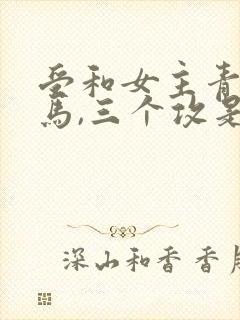 受和女主青
马,三个攻是
深山和香香